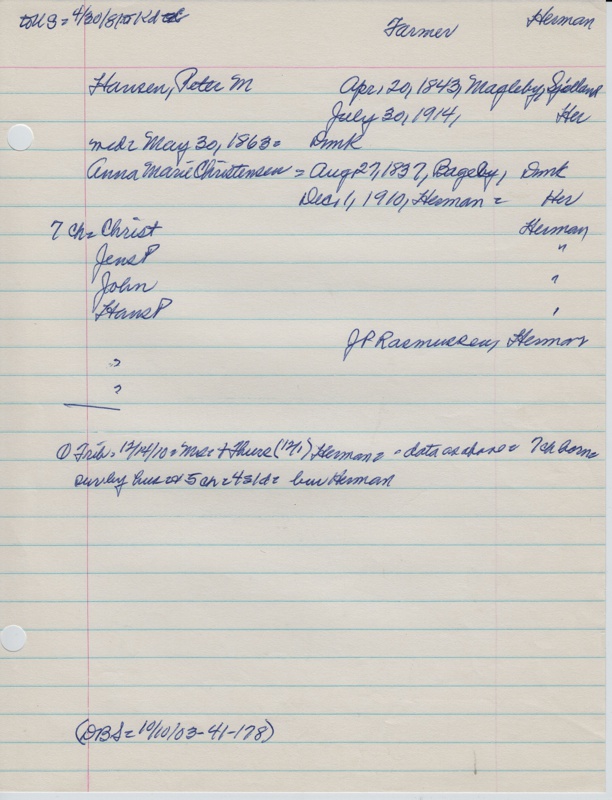 toUS = 4/30/81 to Kd Farmer Herman
Hansen, Peter M Apr, 20, 1843, Magleby, Sjelland
July 30, 1914, Her
mdr May 30, 1863 = Dmk
Anna Marie Christensen = Aug 27, 1837, Bageby, Dmk
Dec, 1, 1910, Herman = Her
7 ch = Christ Herman
Jens P "
John "
Hans P "
J P Rasmussen, Herman
"
"
① Trib = 12/14/10 = Mrs + Thurs (12/1) Herman = - data as above = 7 ch born =
sur by hus + 5 ch = 4s 1d = bur Herman
(DBS = 10/10/03-41-178)